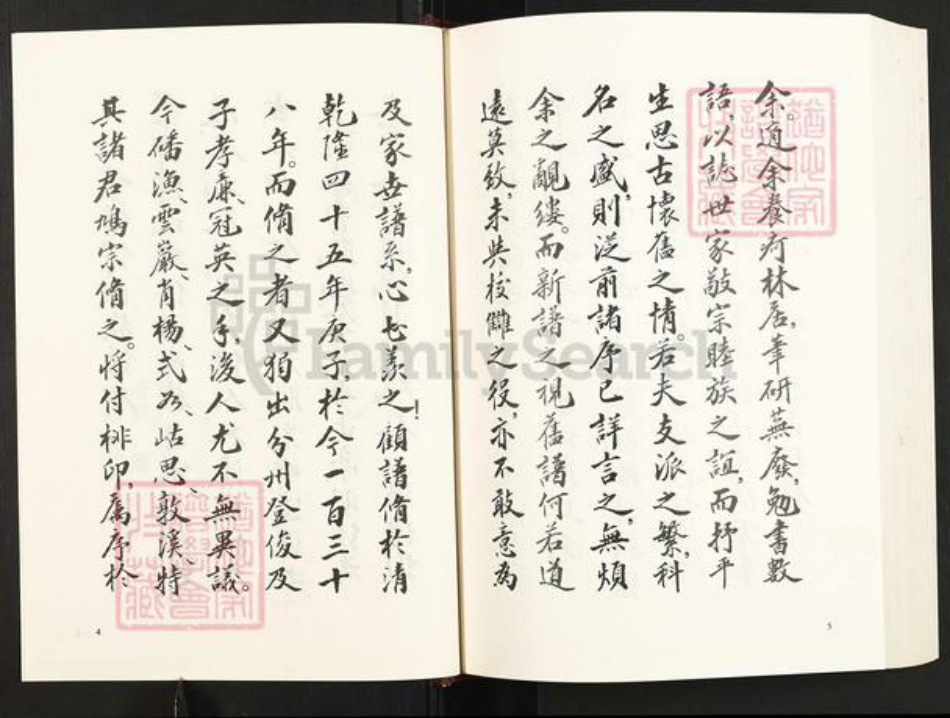 及家世譜系,心甚羨之!顧譜脩於清
乾隆四十五年庚子,於今一百三十
八年。而脩之者又猶出分州登俊及
子孝廉、冠英之手,後人尤不無異議。
今磻漁、雲巖、肖楊、式如、岵思、敦溪、特
其諸君鳩宗脩之。將付梓印,屬序於
4
余。適余養疴林居,筆研蕪廢,勉書數
語,以誌世家敬宗睦族之誼,而抒平
生思古懷舊之情。若夫支派之繁,科
名之盛,則從前諸序已詳言之,無煩
余之覼縷。而新譜之視舊譜何若道
遠莫致,未與校讎之役,亦不敢意為
5
FamilySearch